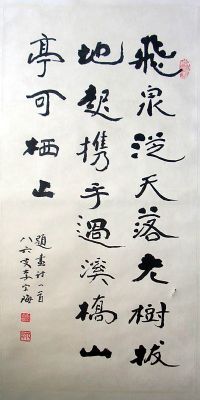 飛泉從天落老樹拔
地起携手過溪橋山
亭可栖止
題畫诗一首
八六叟李